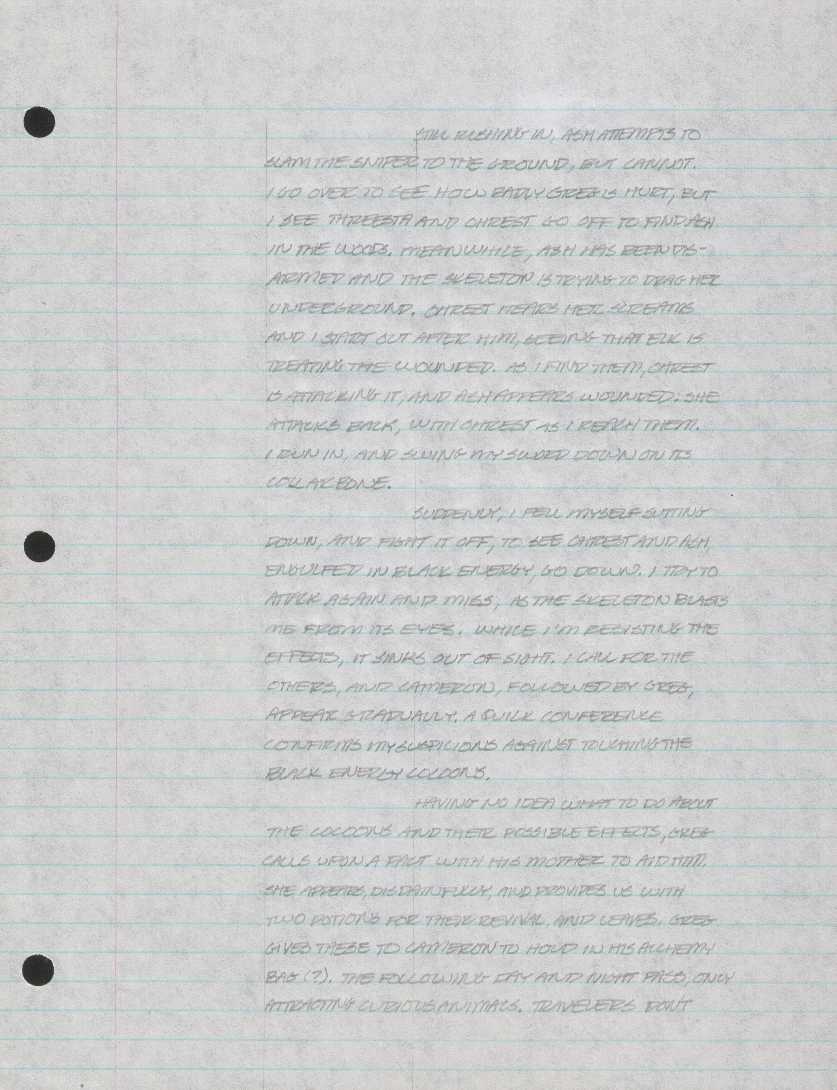 STILL RUSHING IN, ASH ATTEMPTS TO
SLAM THE SNIPER TO THE GROUND, BUT CANNOT.
I GO OVER TO SEE HOW BADLY GREG IS HURT, BUT
I SEE THREESTA AND CHREST GO OFF TO FIND ASH
IN THE WOODS. MEANWHILE, ASH HAS BEEN DIS-
ARMED AND THE SKELETON IS TRYING TO DRAG HER
UNDERGROUND. CHREST HEARS HER SCREAMS
AND I START OUT AFTER HIM, SEEING THAT ELK IS
TREATING THE WOUNDED. AS I FIND THEM, CHREST
IS ATTACKING IT, AND ASH APPEARS WOUNDED. SHE
ATTACKS BACK, WITH CHREST AS I REACH THEM.
I RUN IN, AND SWING MY SWORD DOWN ON ITS
COLLARBONE.
SUDDENLY, I FELL MYSELF SITTING
DOWN, AND FIGHT IT OFF, TO SEE CHREST AND ASH,
ENGULFED IN BLACK ENERGY, GO DOWN. I TRY TO
ATTACK AGAIN AND MISS, AS THE SKELETON BLASTS
ME FROM ITS EYES. WHILE I'M RESISTING THE
EFFECTS, IT SINKS OUT OF SIGHT. I CALL FOR THE
OTHERS, AND CAMERON, FOLLOWED BY GREG,
APPEAR GRADUALLY. A QUICK CONFERENCE
CONFIRMS MY SUSPICIONS AGAINST TOUCHING THE
BLACK ENERGY COCOONS.
HAVING NO IDEA WHAT TO DO ABOUT
THE COCOONS AND THEIR POSSIBLE EFFECTS, GREG
CALLS UPON A PACT WITH HIS MOTHER TO AID HIM.
SHE APPEARS, DISDAINFULLY, AND PROVIDES US WITH
TWO POTIONS FOR THEIR REVIVAL, AND LEAVES. GREG
GIVES THESE TO CAMERON TO HOLD IN HIS ALCHEMY
BAG (?). THE FOLLOWING DAY AND NIGHT PASS, ONLY
ATTRACTING CURIOUS ANIMALS. TRAVELERS DON'T